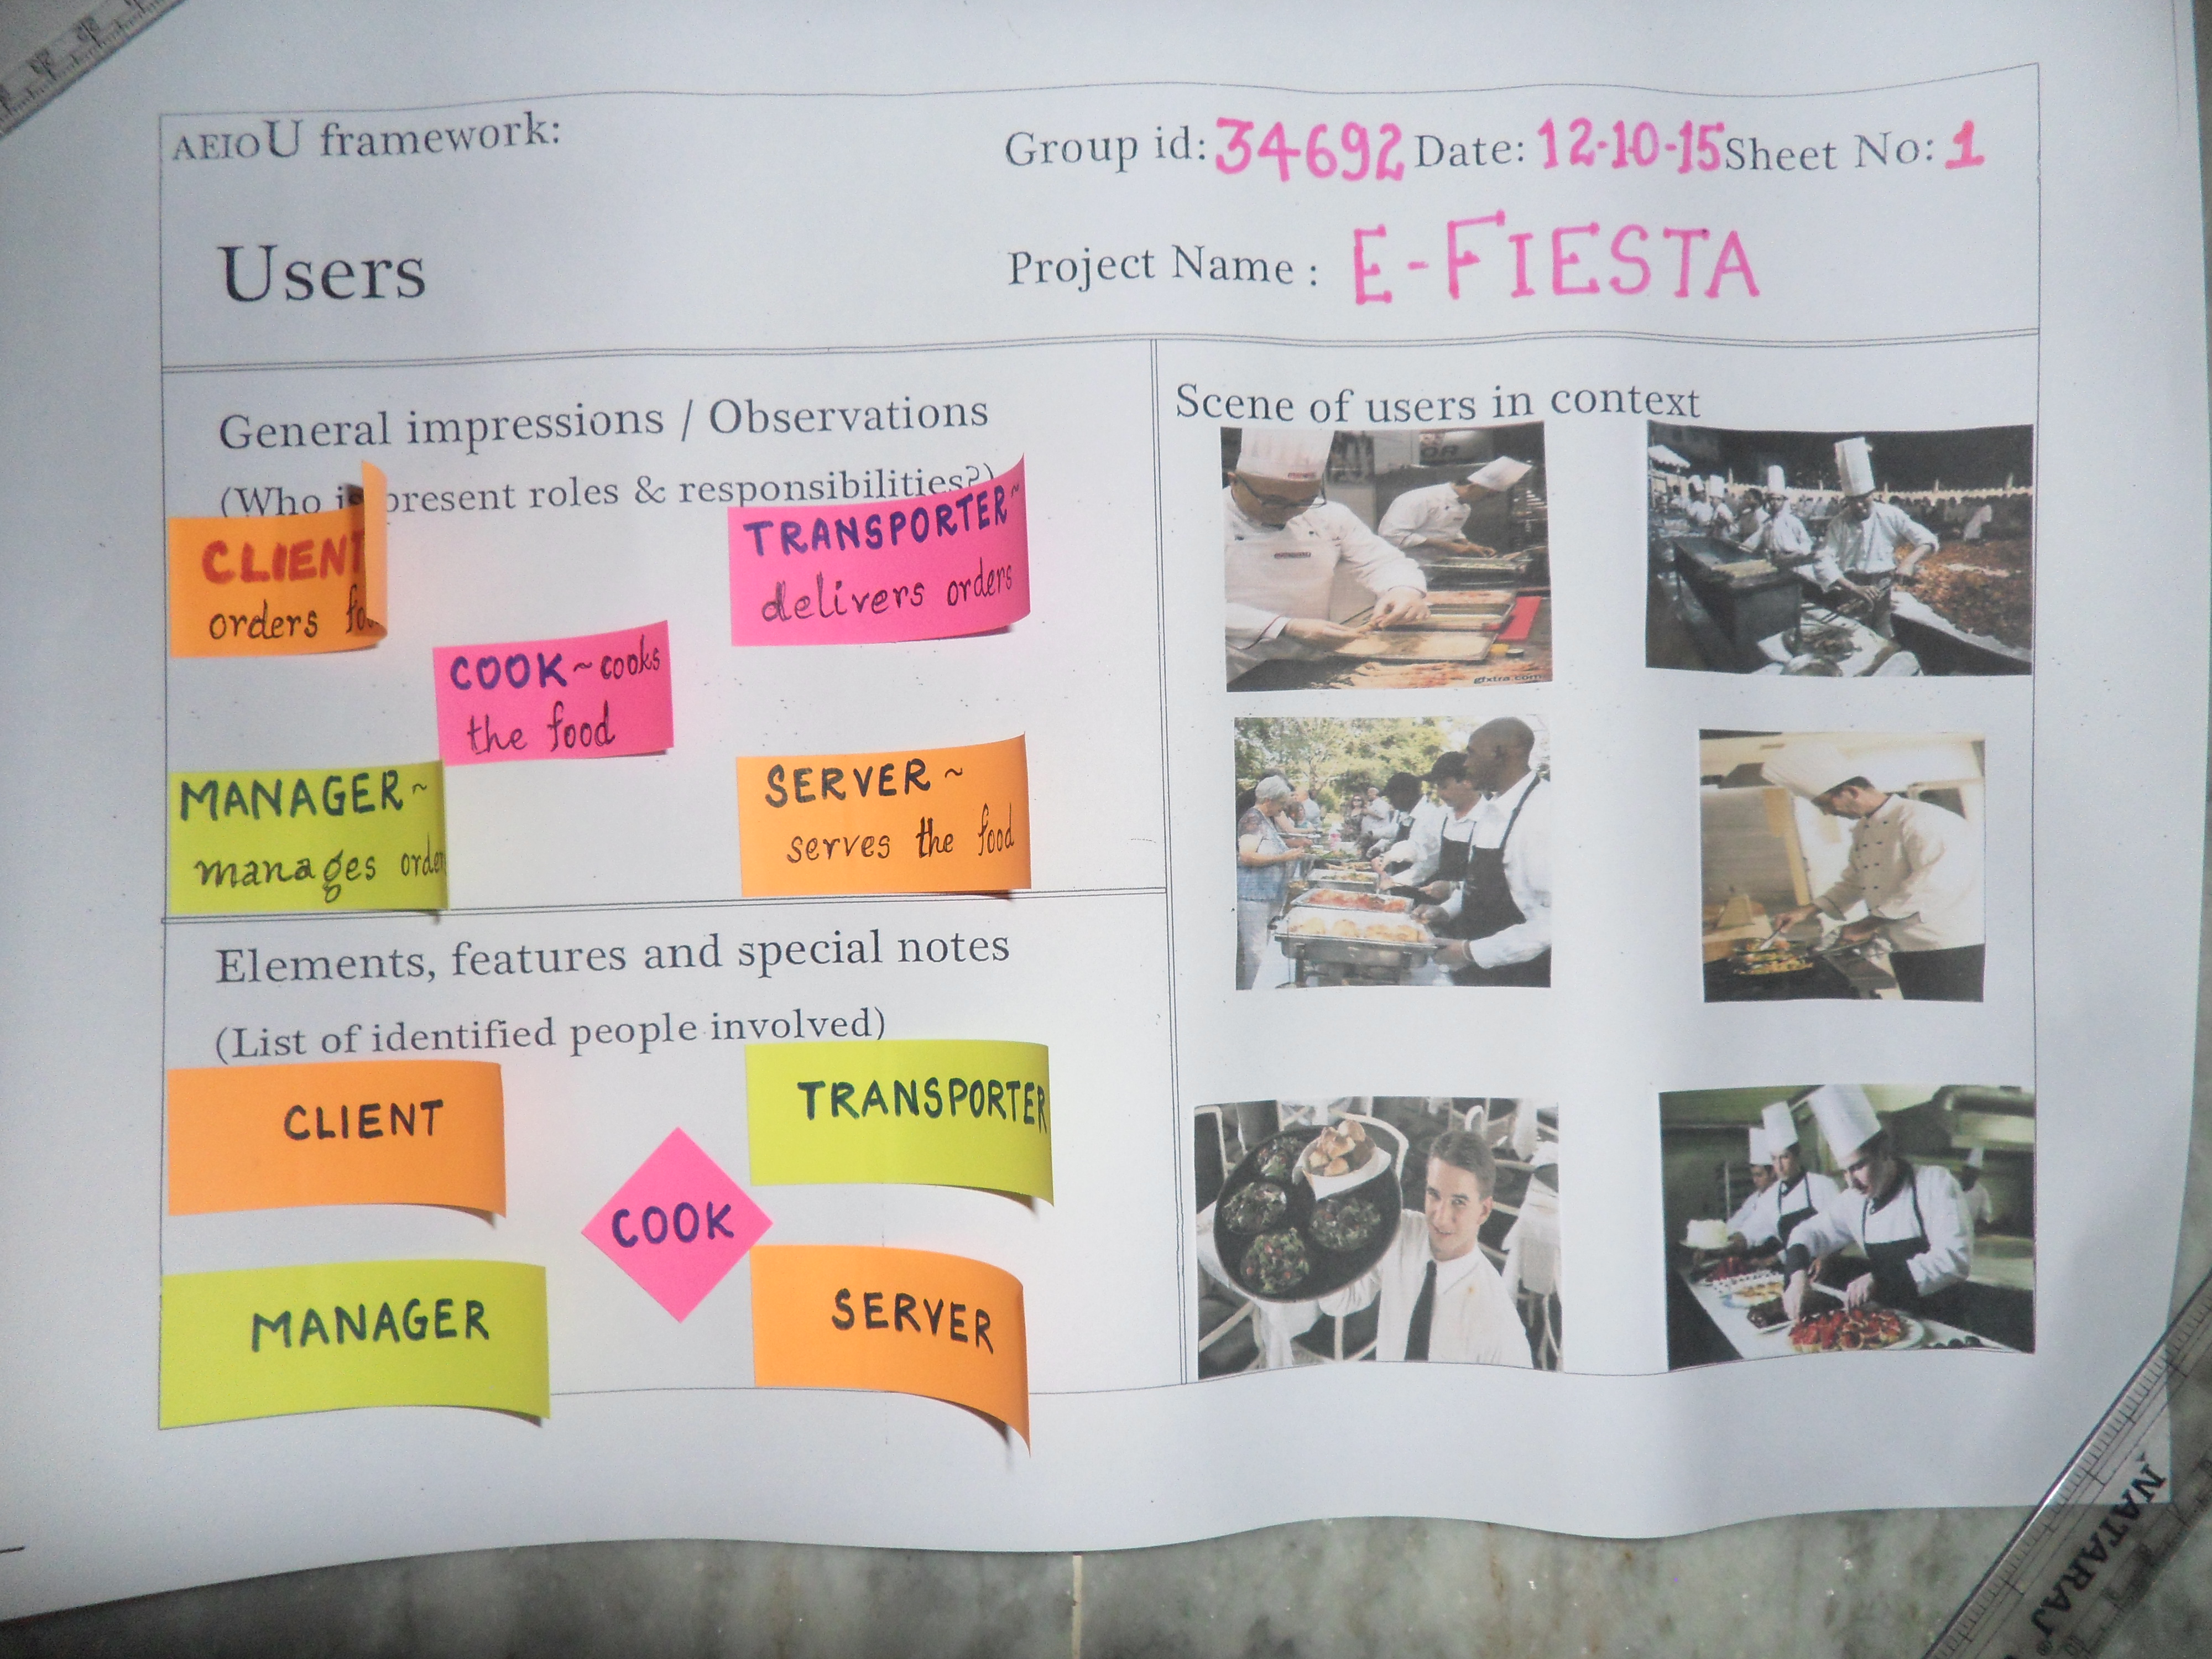 AEIOU framework:
Group id: 34692 Date: 12-10-15 Sheet No: 1
Users
Project Name : E-FIESTA
General impressions / Observations
(Who is present roles & responsibilities?)
CLIENT
orders
TRANSPORTER~
delivers orders
COOK~cooks
the food
MANAGER~
manages
SERVER~
serves the food
Elements, features and special notes
(List of identified people involved)
CLIENT
TRANSPORTER
COOK
MANAGER
SERVER
Scene of users in context
gfxtra.com
NATARAJ®